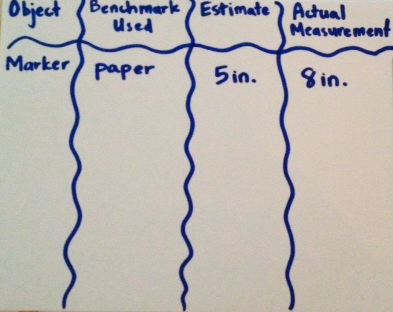 Object Benchmark Used Estimate Actual Measurement
Marker paper 5 in. 8 in.